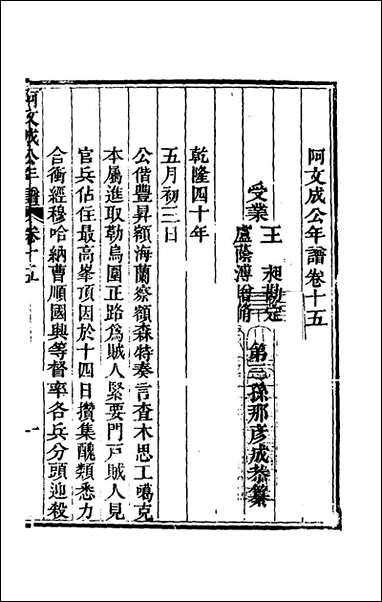 阿文成公年譜卷十五
第三孫那彥成恭纂
受業王　昶勘定
盧蔭溥增脩
乾隆四十年
五月初三日
公偕豐昇額海蘭察額森特奏言查木思工噶克
本屬進取勒烏圍正路爲賊人緊要門戶賊人見
官兵佔住最高峯頂因於十四日攢集醜類悉力
合衝經穆哈納曹順國興等督率各兵分頭迎殺
阿文成公年譜　卷十五　一